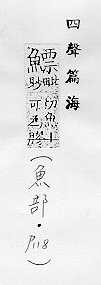 四聲篇海
鰾毗眇切魚
可為膠
(魚部·P.118)